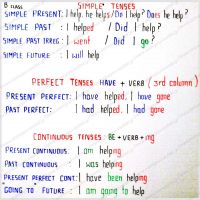 B CLASS
SIMPLE TENSES
SIMPLE PRESENT: I help, he helps / Do I help? Does he help?
SIMPLE PAST : I helped / Did I help?
SIMPLE PAST IRREG: I went / Did I go?
SIMPLE FUTURE : I will help
PERFECT TENSES HAVE + VERB (3rd column)
PRESENT PERFECT: I have helped, I have gone
PAST PERFECT: I had helped, I had gone
CONTINUOUS TENSES: BE + VERB + ing
PRESENT CONTINUOUS: I am helping
PAST CONTINUOUS : I was helping
PRESENT PERFECT CONT: I have been helping
"GOING TO" FUTURE : I am going to help